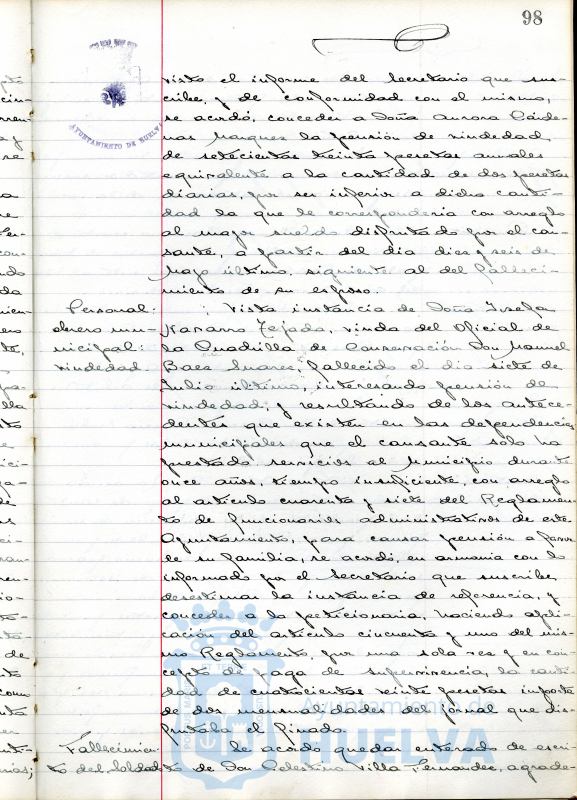 98
AYUNTAMIENTO DE HUELVA
visto el informe del Secretario que sus-
cribe, y de conformidad con el mismo,
se acordó, conceder a Doña Aurora Cárde-
nas Marquez la pensión de viudedad
de setecientas treinta pesetas anuales
equivalente a la cantidad de dos pesetas
diarias, por ser inferior a dicha canti-
dad la que le correspondería con arreglo
al mayor sueldo disfrutado por el cau-
sante, a partir del dia diez y seis de
Mayo último, siguiente al del falleci-
miento de su esposo.
Personal:
obrero mu-
nicipal:
viudedad.
Vista instancia de Doña Josefa
Navarro Tejada, viuda del Oficial de
la Cuadrilla de Conservación Don Manuel
Baez Suarez, fallecido el dia siete de
Julio último, interesando pensión de
viudedad; y resultando de los antece-
dentes que existen en las dependencias
municipales que el causante solo ha
prestado servicios al Municipio durante
once años, tiempo insuficiente, con arreglo
al artículo cuarenta y siete del Reglamen-
to de funcionarios administrativos de este
Ayuntamiento, para causar pensión a favor
de su familia, se acordó, en armonia con lo
informado por el Secretario que suscribe,
desestimar la instancia de referencia, y
conceder a la peticionaria, haciendo apli-
cación del artículo cincuenta y uno del mis-
mo Reglamento, por una sola vez y en con-
cepto de paga de supervivencia, la canti-
dad de cuatrocientas veinte pesetas importe
de dos mensualidades del jornal que dis-
frutaba el finado.
Fallecimien-
to del Soldado
Se acordó quedar enterado de escri-
to de Don Celestino Villa Fernandez, agrade-
Ayuntamiento de
HUELVA